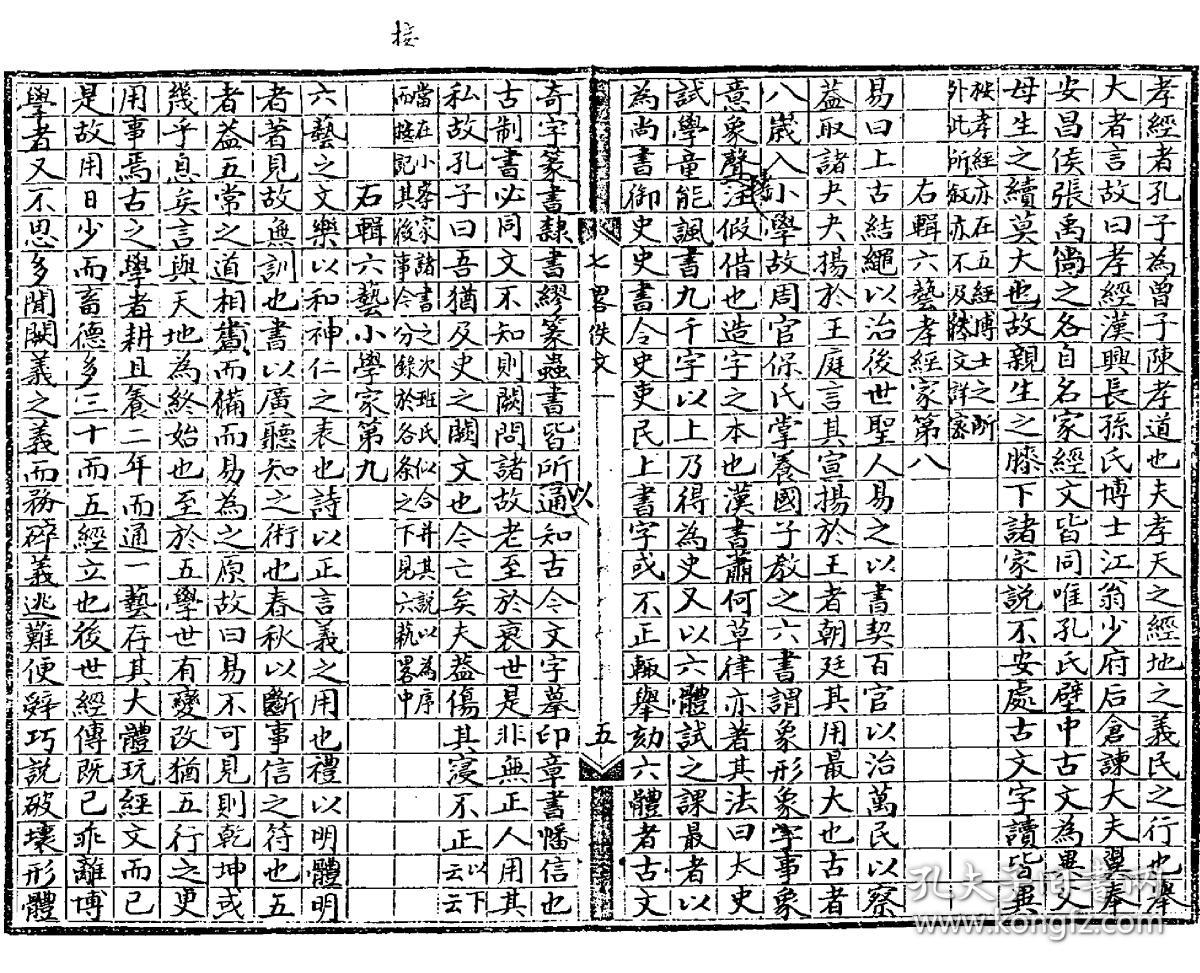 按
孝經者孔子為曾子陳孝道也夫孝天之經地之義民之行也舉
大者言故曰孝經漢興長孫氏博士江翁少府后倉諫大夫翼奉
安昌侯張禹尚之各自名家經文皆同唯孔氏壁中古文為異父
母生之續莫大也故親生之膝下諸家說不安處古文字讀皆異
按孝經亦在五經博士之所
外此所敘亦不及
右輯六藝孝經家第八
易曰上古結繩以治後世聖人易之以書契百官以治萬民以察
蓋取諸夬夬揚於王庭言其宣揚於王者朝廷其用最大也古者
八歲入小學故周官保氏掌養國子教之六書謂象形象事象
意象聲轉注假借也造字之本也漢書蕭何草律亦著其法曰太史
試學童能諷書九千字以上乃得為史又以六體試之課最者以
為尚書御史史書令史吏民上書字或不正輒舉劾六體者古文
七畧佚文
五
奇字篆書隸書繆篆蟲書皆所以通知古今文字摹印章書幡信也
古制書必同文不知則闕問諸故老至於衰世是非無正人用其
私故孔子曰吾猶及史之闕文也今亡矣夫蓋傷其寖不正云以下云
當在小學家諸書之次班氏似合并其說以為序
而雜記其後事今分錄於各條之下見六藝畧中
右輯六藝小學家第九
六藝之文樂以和神仁之表也詩以正言義之用也禮以明體明
者著見故無訓也書以廣聽知之術也春秋以斷事信之符也五
者蓋五常之道相須而備而易為之原故曰易不可見則乾坤或
幾乎息矣言與天地為終始也至於五學世有變改猶五行之更
用事焉古之學者耕且養三年而通一藝存其大體玩經文而已
是故用日少而畜德多三十而五經立也後世經傳既已乖離博
學者又不思多聞闕義之義而務碎義逃難便辭巧說破壞形體
孔夫子旧书网
www.kongfz.com